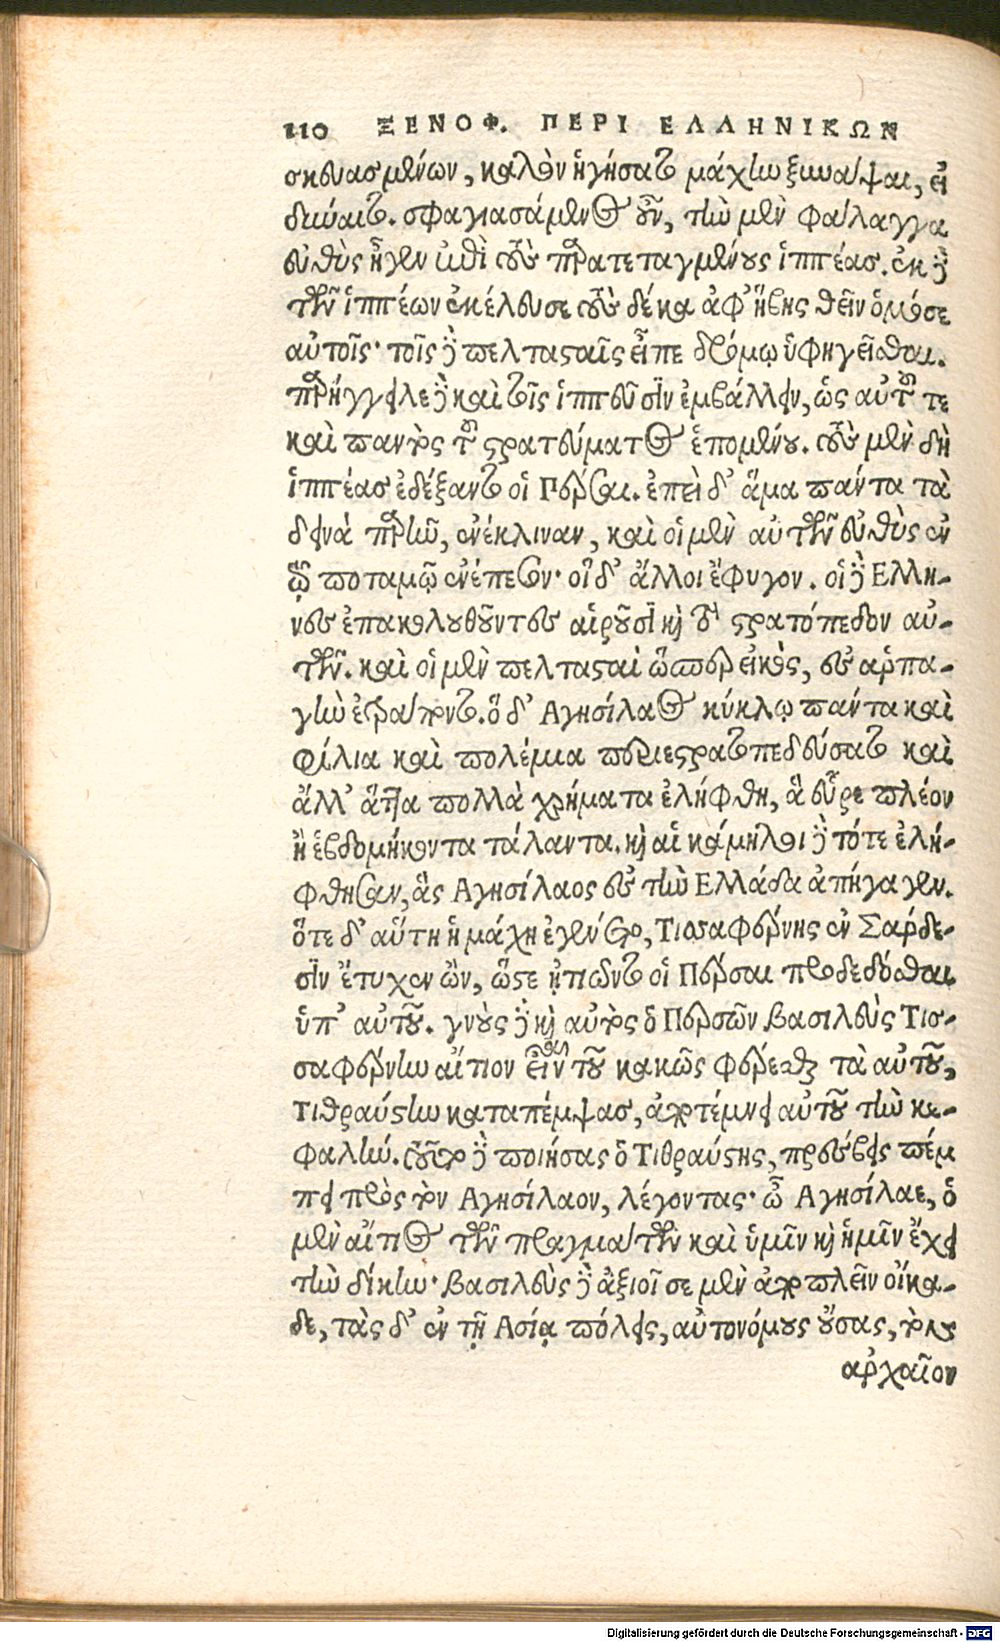 110 ΞΕΝΟΦ. ΠΕΡΙ ΕΛΛΗΝΙΚΩΝ
σκευασμένων, καλὸν ἡγήσατο μάχην ξυνάψαι, εἰ
δύναιτο. σφαγιασάμενος οὖν, τὴν μὲν φάλαγγα
εὐθὺς ἦγεν ἐπὶ τοὺς παρατεταγμένους ἱππέας. ἐκ δὲ
τῶν ὁπλιτῶν ἐκέλευσε τοὺς δέκα ἀφ' ἥβης θεῖν ὁμόσε
αὐτοῖς· τοῖς δὲ πελτασταῖς εἶπε δρόμῳ ὑφηγεῖσθαι.
παρήγγειλε δὲ καὶ τοῖς ἱππεῦσιν ἐμβάλλειν, ὡς αὐτοῦ τε
καὶ παντὸς τοῦ στρατεύματος ἑπομένου. τοὺς μὲν δὴ
ἱππέας ἐδέξαντο οἱ Πέρσαι. ἐπεὶ δ' ἅμα πάντα τὰ
δεινὰ παρῆν, ἐνέκλιναν, καὶ οἱ μὲν αὐτῶν εὐθὺς ἐν
τῷ ποταμῷ ἐνέπεσον· οἱ δ' ἄλλοι ἔφυγον. οἱ δὲ Ελλη-
νες ἐπακολουθοῦντες αἱροῦσι καὶ τὸ στρατόπεδον αὐ-
τῶν. καὶ οἱ μὲν πελτασταὶ ὥσπερ εἰκὸς, ἐς ἁρπα-
γὴν ἐτράποντο. ὁ δ' Αγησίλαος κύκλῳ πάντα καὶ
φίλια καὶ πολέμια περιεστρατοπεδεύσατο καὶ
ἄλλ' ἅττα πολλὰ χρήματα ἐλήφθη, ἃ εὗρε πλέον
ἢ ἑβδομήκοντα τάλαντα. καὶ αἱ κάμηλοι δὲ τότε ἐλή-
φθησαν, ἃς Αγησίλαος ἐς τὴν Ελλάδα ἀπήγαγεν.
ὅτε δ' αὕτη ἡ μάχη ἐγένετο, Τισσαφέρνης ἐν Σάρδε-
σιν ἔτυχεν ὢν, ὥστε ᾐτιῶντο οἱ Πέρσαι προδεδόσθαι
ὑπ' αὐτοῦ. γνοὺς δὲ καὶ αὐτὸς ὁ Περσῶν βασιλεὺς Τισ-
σαφέρνην αἴτιον εἶναι τοῦ κακῶς φέρεσθαι τὰ αὐτοῦ,
Τιθραύστην καταπέμψας, ἀποτέμνει αὐτοῦ τὴν κε-
φαλήν. τοῦτο δὲ ποιήσας ὁ Τιθραύστης, πρέσβεις πέμ
πει πρὸς τὸν Αγησίλαον, λέγοντας· ὦ Αγησίλαε, ὁ
μὲν αἴτιος τῶν πραγμάτων καὶ ὑμῖν καὶ ἡμῖν ἔχει
τὴν δίκην· βασιλεὺς δὲ ἀξιοῖ σε μὲν ἀποπλεῖν οἴκα-
δε, τὰς δ' ἐν τῇ Ασίᾳ πόλεις, αὐτονόμους οὔσας, τὸν
ἀρχαῖον
Digitalisierung gefördert durch die Deutsche Forschungsgemeinschaft - DFG